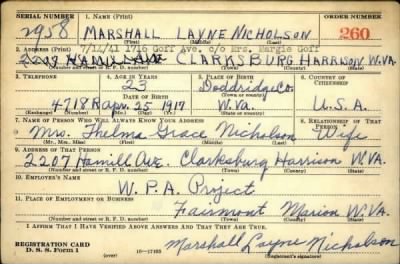 SERIAL NUMBER 1. NAME (Print) ORDER NUMBER
2958 MARSHALL LAYNE NICHOLSON 260
2. ADDRESS (Print) 7/14/41 1716 Goff Ave. c/o Mrs. Margie Goff
2207 HAMILL AVE CLARKSBURG HARRISON W.VA.
(Number and street or R. F. D. number) (Town) (County) (State)
3. TELEPHONE 4. AGE IN YEARS 5. PLACE OF BIRTH 6. COUNTRY OF CITIZENSHIP
23 Doddridge Co.
4718R Apr. 25 1917 W.Va. U.S.A.
(Exchange) (Number) (Mo.) (Day) (Yr.) (State or country)
7. NAME OF PERSON WHO WILL ALWAYS KNOW YOUR ADDRESS 8. RELATIONSHIP OF THAT PERSON
Mrs. Thelma Grace Nicholson Wife
(Mr., Mrs., Miss) (First) (Middle) (Last)
9. ADDRESS OF THAT PERSON
2207 Hamill Ave. Clarksburg Harrison W.VA.
(Number and street or R. F. D. number) (Town) (County) (State)
10. EMPLOYER'S NAME
W.P.A. Project
11. PLACE OF EMPLOYMENT OR BUSINESS
Fairmont Marion W.VA.
(Number and street or R. F. D. number) (Town) (County) (State)
I AFFIRM THAT I HAVE VERIFIED ABOVE ANSWERS AND THAT THEY ARE TRUE.
REGISTRATION CARD
D. S. S. Form 1 (over) 16—17105 Marshall Layne Nicholson
(Registrant's signature)